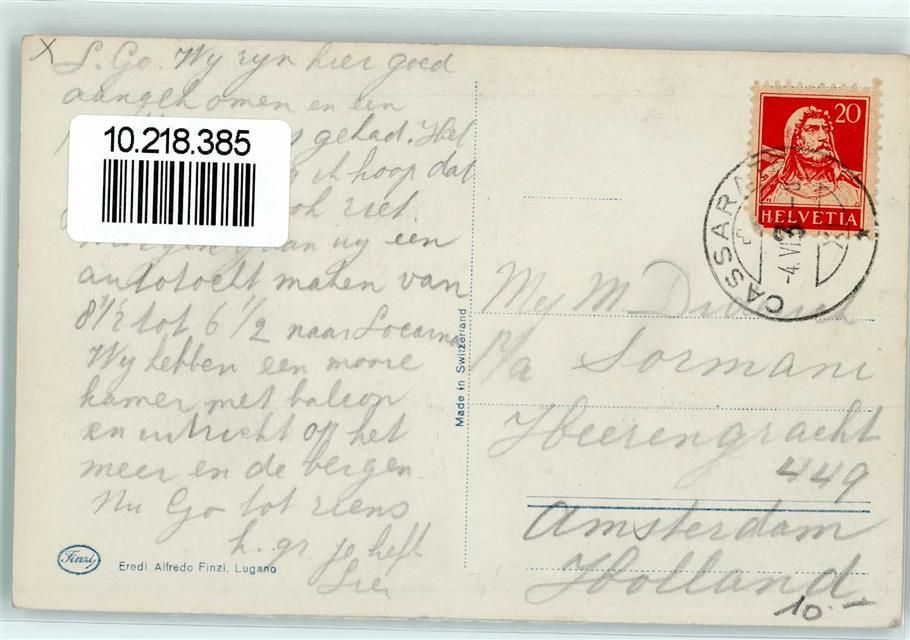 X L. Go. Wy zyn hier goed
aangekomen en een
gehad. Het
ik hoop dat
ook ziet.
Morgen gaan wy een
autotocht maken van
8 1/2 tot 6 1/2 naar Locarno
Wy hebben een mooie
kamer met balcon
en uitzicht op het
meer en de bergen.
Nu Go tot ziens
h. gr. je
10.218.385
Finzi
Eredi Alfredo Finzi, Lugano
Made in Switzerland
20
HELVETIA
CASSARA
-4.VI
Mej M.
p/a Sormani
Heerengracht
449
Amsterdam
Holland
10.-